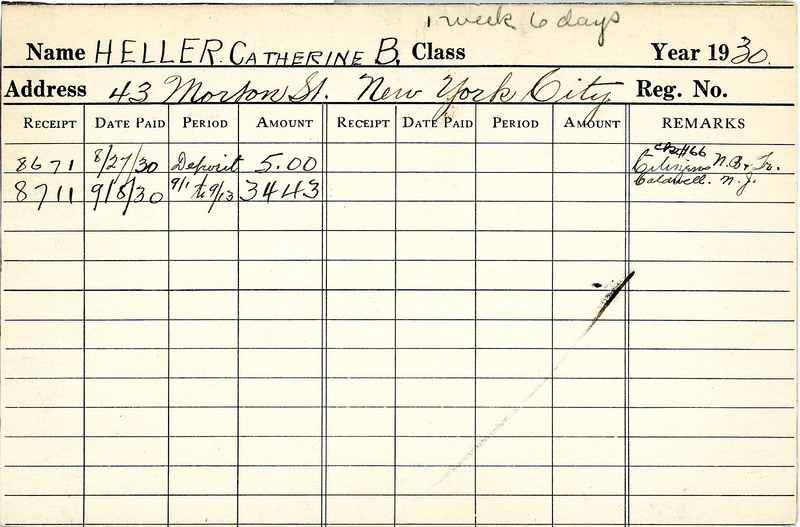 1 week 6 days
Name HELLER. CATHERINE B. Class Year 1930.
Address 43 Morton St. New York City Reg. No.
RECEIPT DATE PAID PERIOD AMOUNT RECEIPT DATE PAID PERIOD AMOUNT REMARKS
ck#166
8671 8/27/30 Deposit 5.00 Citizens N.B.& Tr.
8711 9/8/30 9/1 to 9/13 3443 Caldwell. N.J.